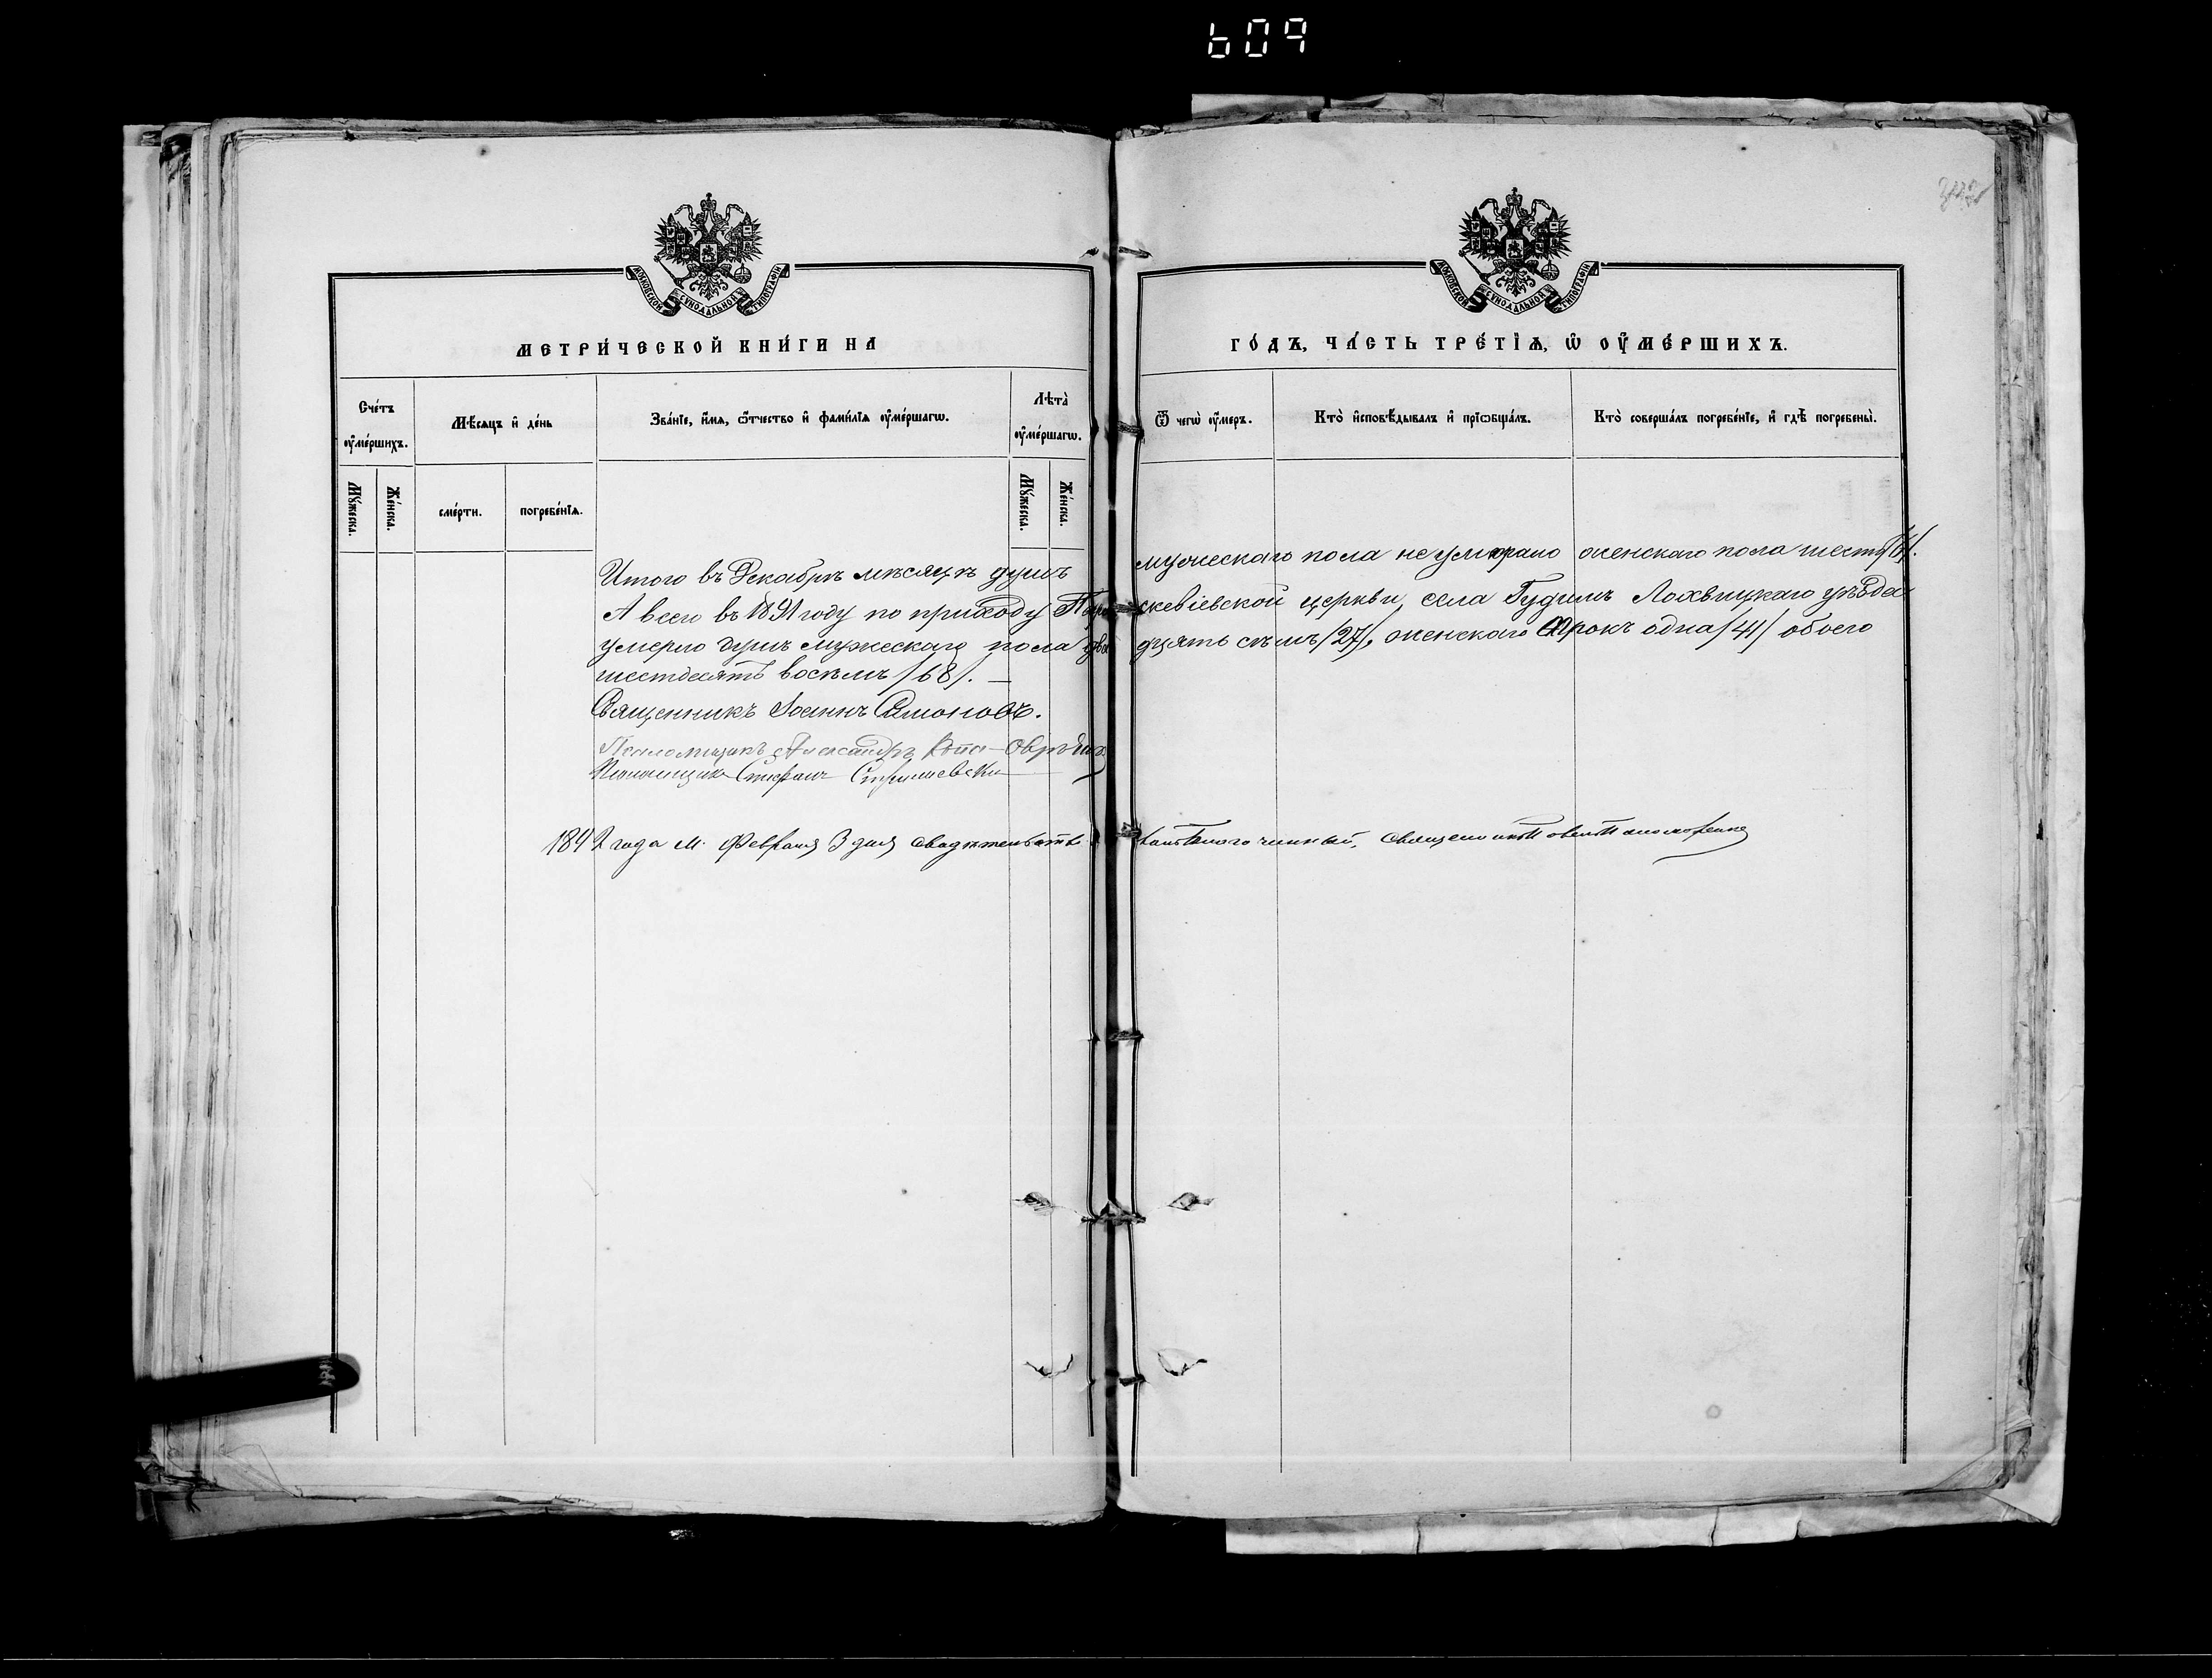 609
МОСКОВСКОЙ СѴНОДАЛЬНОЙ ТИПОГРАФІИ
МОСКОВСКОЙ СѴНОДАЛЬНОЙ ТИПОГРАФІИ
МЕТРИ́ЧЕСКОЙ КНИ́ГИ НА
ГО́ДЪ, ЧА́СТЬ ТРЕ́ТІѦ, Ѡ҆ ОУ҆МЕ́РШИХЪ.
Сче́тъ оу҆ме́ршихъ.
Мѣ́сѧцъ и҆ де́нь
Зва́нїе, и҆́мѧ, ѻ҆́тчество и҆ фами́лїѧ оу҆ме́ршагѡ.
Лѣта̀ оу҆ме́ршагѡ.
Ѿ чегѡ̀ оу҆́меръ.
Кто̀ и҆сповѣ́дывалъ и҆ прїѡбща́лъ.
Кто̀ соверша́лъ погребе́нїе, и҆ гдѣ̀ погребены̀.
Мꙋ́жеска.
Же́нска.
сме́рти.
погребе́нїѧ.
Мꙋ́жеска.
Же́нска.
Итого въ Декабрѣ мѣсяцѣ душъ мужескаго пола не умерало женскаго пола шесть /6/.
А всего въ 1891 году по приходу Параскевіевской церкви, села Гудимъ Лохвицкаго уѣзда
умерло душъ мужескаго пола двадцять сѣмъ /27/, женскаго сорокъ одна /41/ обоего
шестдесятъ восѣмъ /68/. —
Священникъ Іоаннъ Симоновъ.
Псаломщикъ Александръ
Стефанъ
1892 года м. Февраля 3 дня